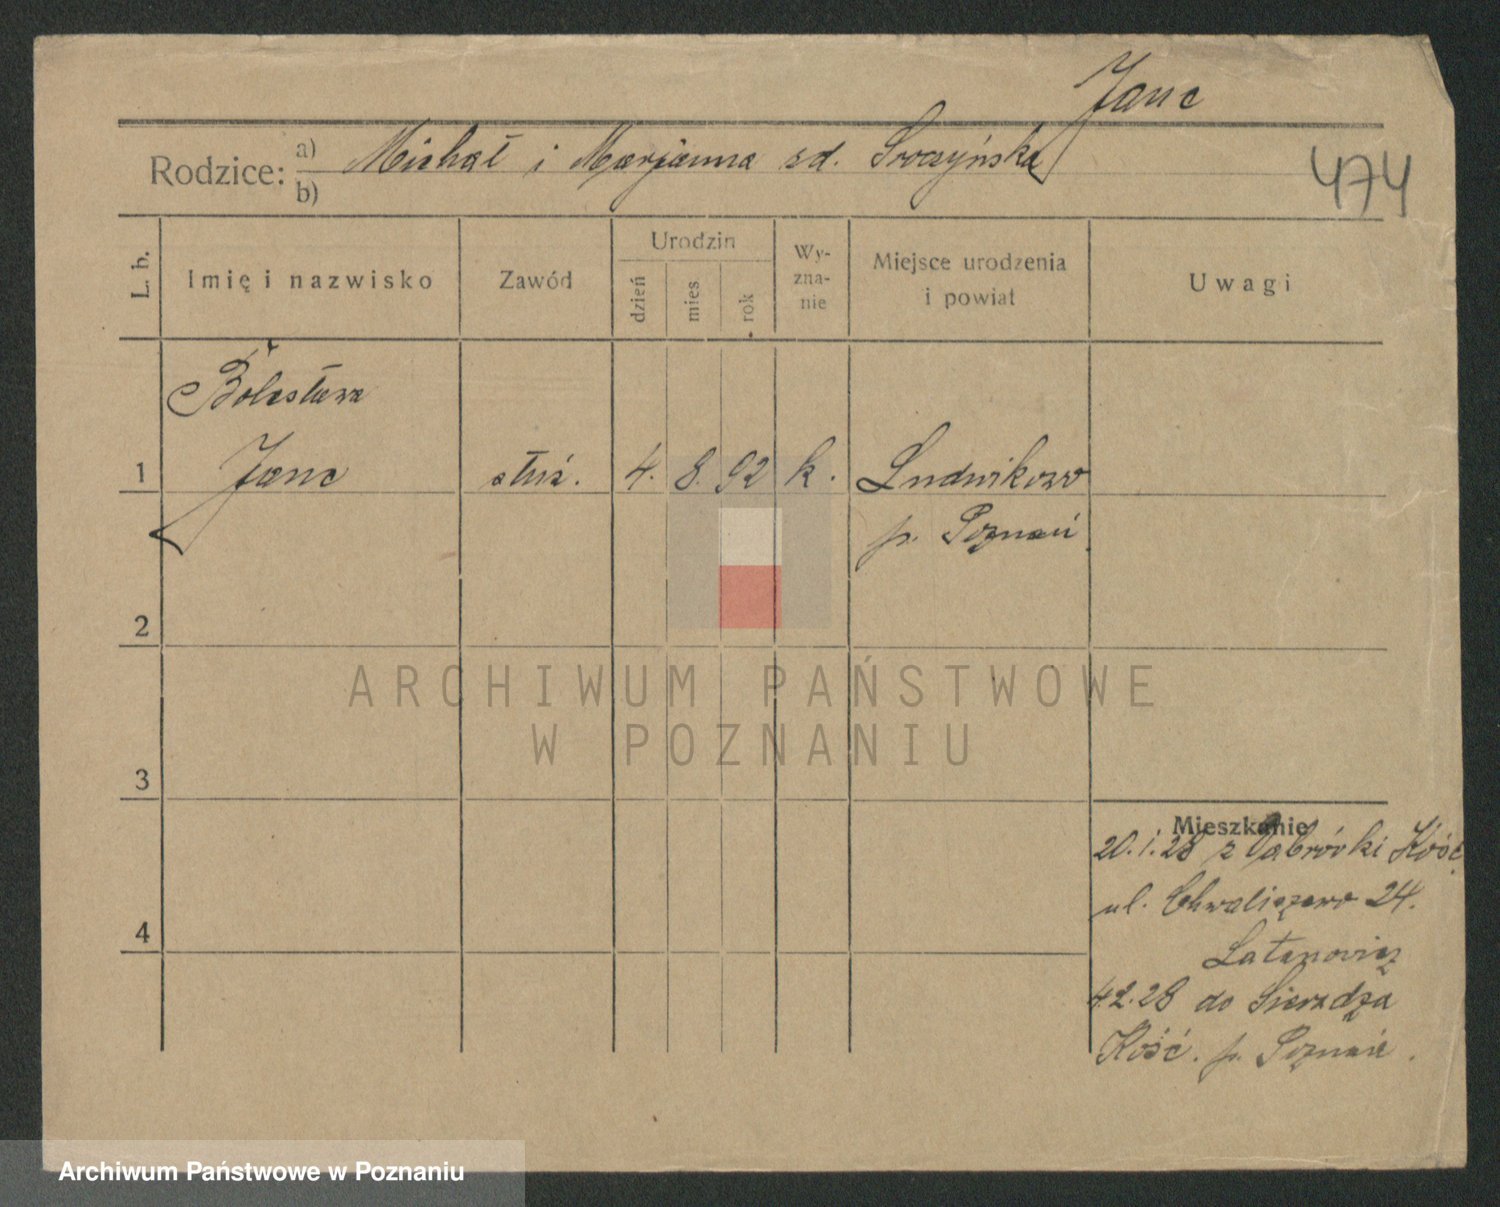 Janc
Rodzice: a) Michał i Marjanna zd.
b)
474
L. b.
Imię i nazwisko
Zawód
Urodzin
dzień
mies
rok
Wy-
zna-
nie
Miejsce urodzenia
i powiat
Uwagi
Bolesława
1 Janc służ. 4. 8. 92 k. Ludwikowo
p. Poznań
2
3
4
Mieszkanie
20.1.28 z Dąbrówki Kość.
ul. Chwaliszewo 24.
Łatanowicz
4.2.28 do
Kość. p. Poznań.
ARCHIWUM PAŃSTWOWE
W POZNANIU
Archiwum Państwowe w Poznaniu